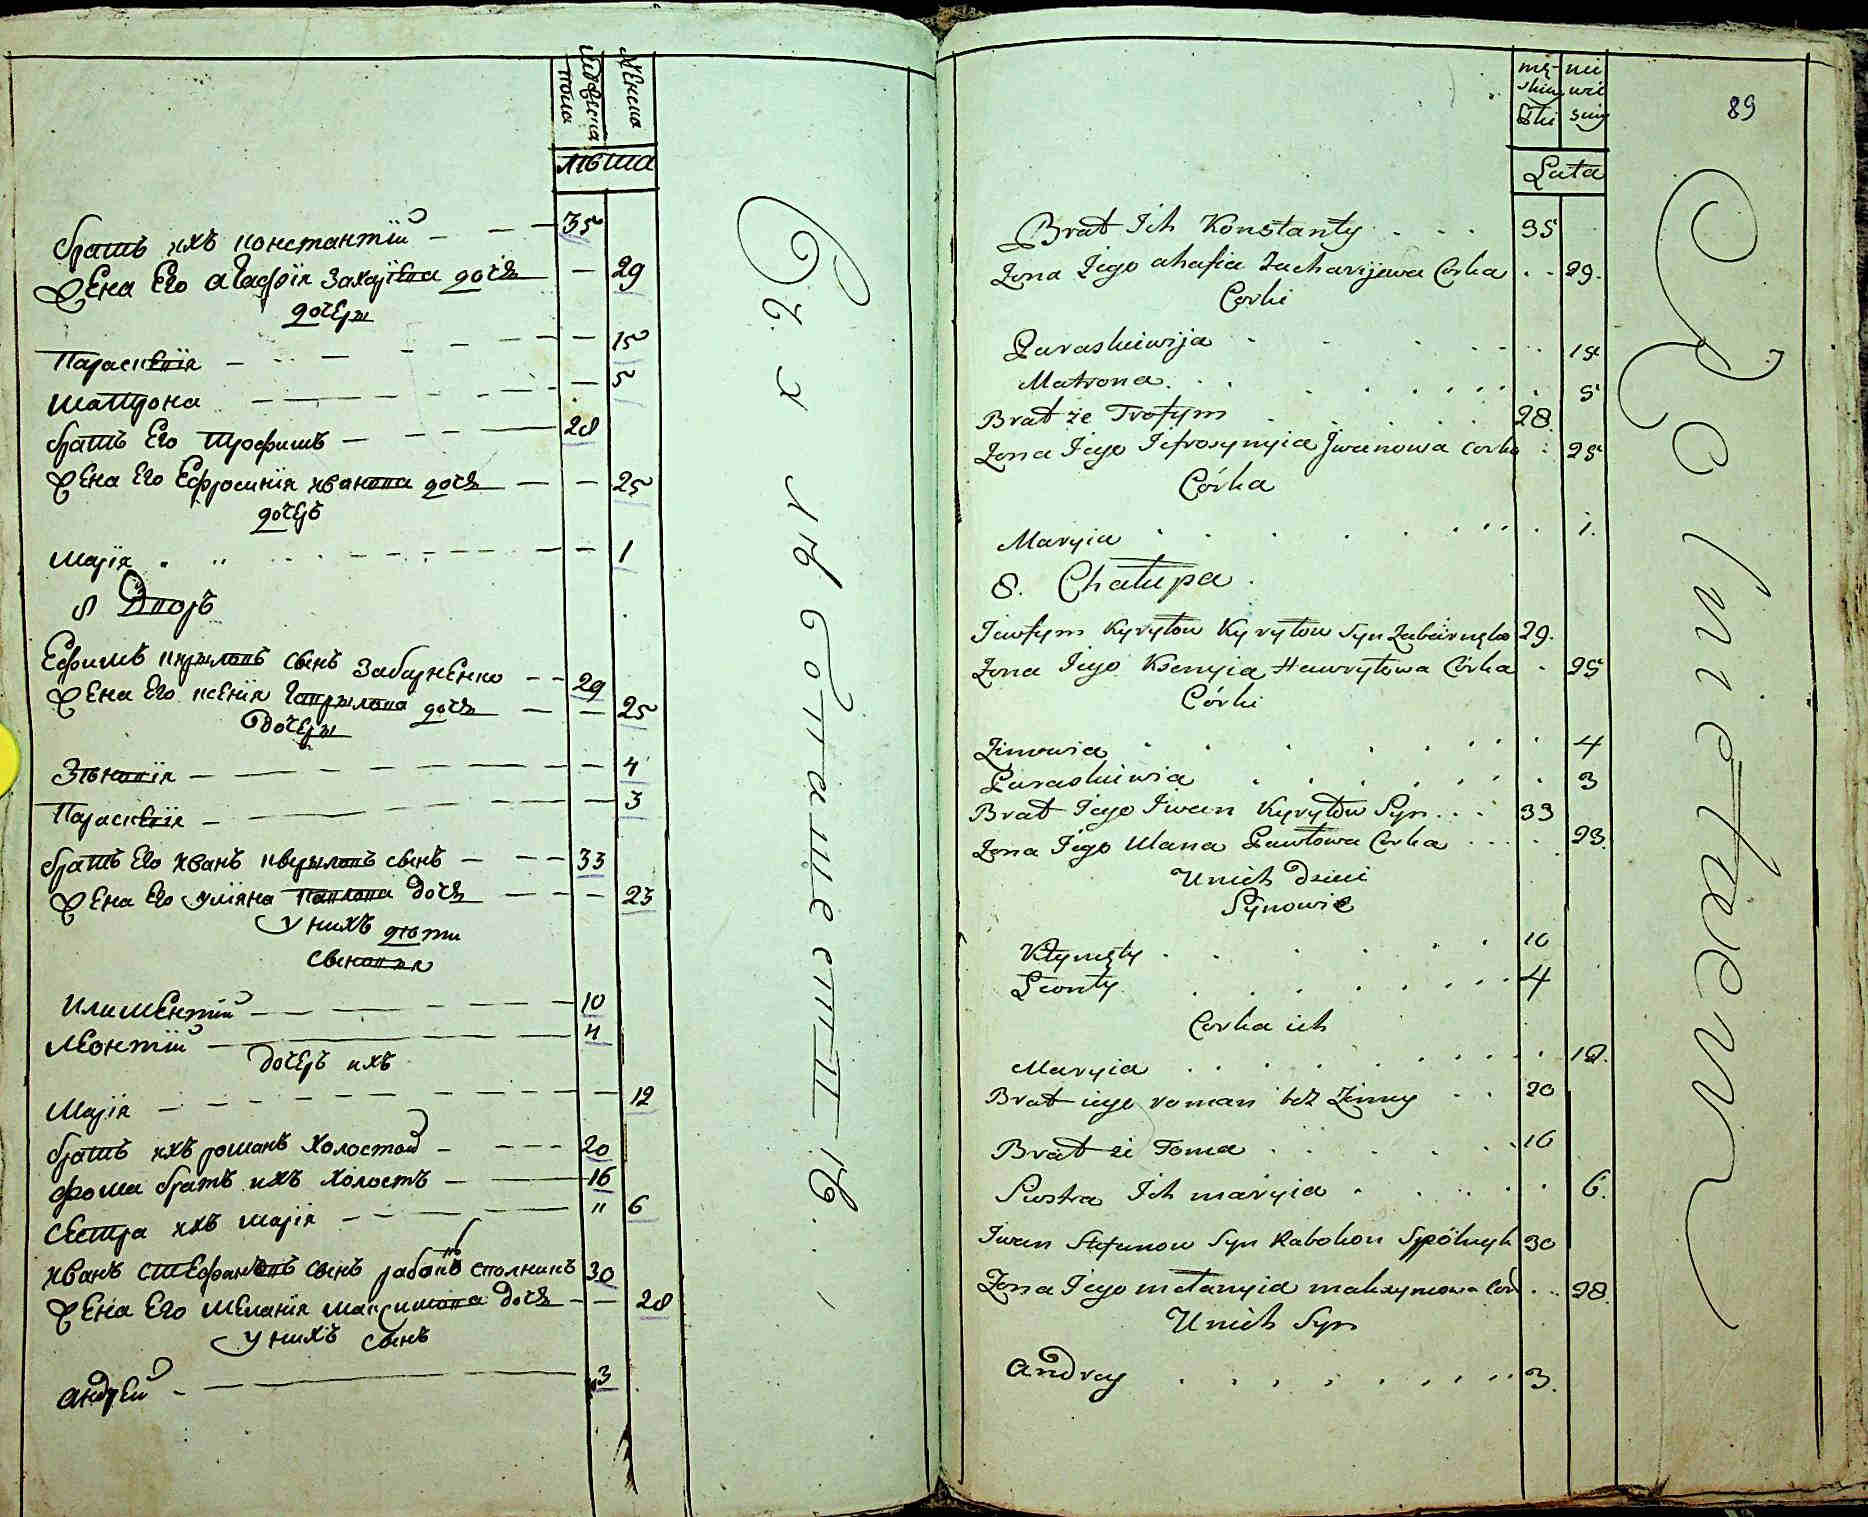 мужеска пола
женска
лѣта
братъ ихъ константiй 35
жена Его агафiя захарiева дочь 29
дочеры
Параскевiя 15
матрона 5
братъ Его трофимъ 28
жена Его Ефросинiя иванова дочь 25
дочеръ
марiя 1
8 Дворъ
Ефимъ кирыловъ сынъ Забарненко 29
жена Его ксенiя гаврылова дочь 25
дочеры
Зѣновiя 4
Параскевiя 3
братъ Его иванъ кирыловъ сынъ 33
жена Его улiяна павлова дочь 23
у нихъ дѣти
сыновья
климентiй 10
леонтiй 4
дочеръ ихъ
марiя 12
братъ ихъ романъ холостой 20
фома братъ ихъ холостъ 16
сестра ихъ марiя 6
иванъ стефановъ сынъ рабоконь сполникъ 30
жена Его меланiя максимова дочь 28
у нихъ сынъ
андрей 3
89
Lata
Brat Ich Konstanty 35
Zona Jego ahafia Zacharyjewa Corka 29.
Corki
Paraskiewija 15
Matrona 5
Brat że Trofym 28
Zona Jego Jefrosynyia Jwanowa corka 25
Córka
Maryia 1.
8. Chałupa
Jewfym Kyryłow Kyryłow Syn Zabarnęko 29.
Zona Jego Ksenyia Hawryłowa Córka 25
Córki
Zinowia 4
Paraskiewia 3
Brat Jego Iwan Kyryłow Syn 33
Zona Jego Ulana Pawłowa Corka 23.
U nich dzieci
Synowie
Kłymęty 10
Leonty 4
Corka ich
Maryia 12.
Brat iego roman bez Zinny 20
Brat że Toma 16
Siostra Ich maryia 6.
Iwan Stefanow Syn Rabokon Spólnyk 30
Zona Jego mełanyia maksymowa Cor 28.
U nich Syn
Andrey 3.